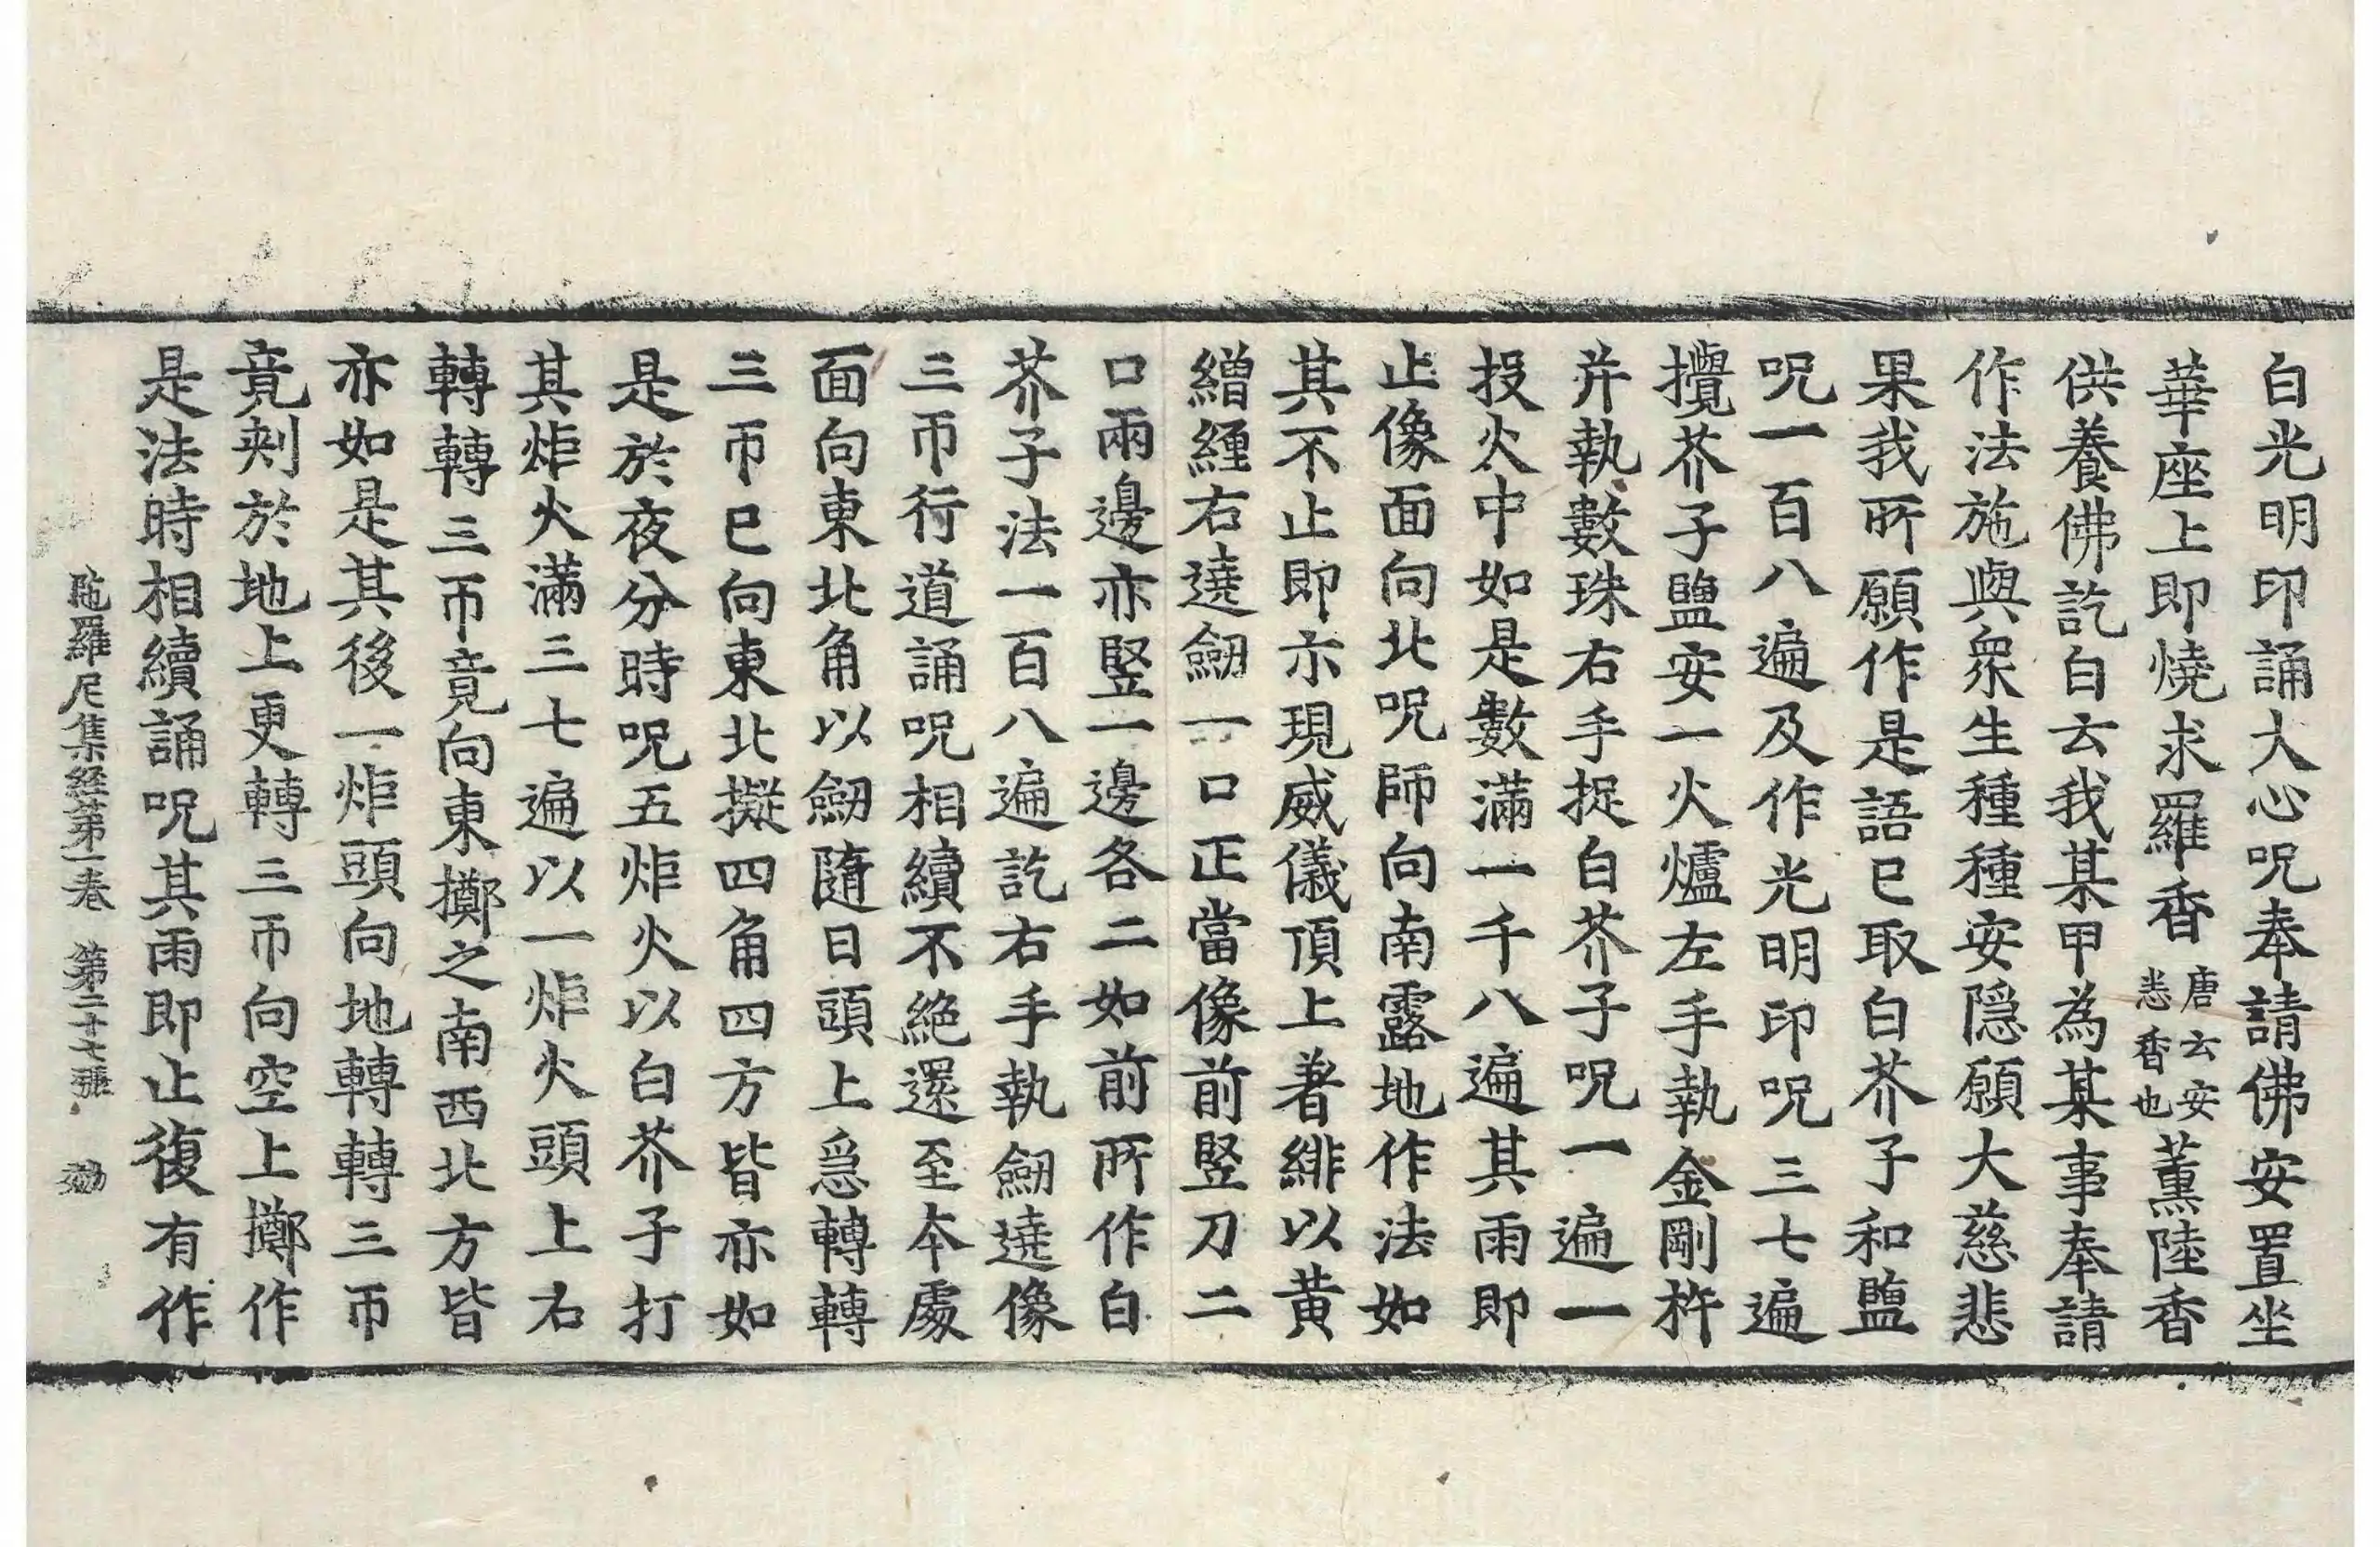 白光明印誦大心呪奉請佛安置坐
華座上即燒求羅香唐云安悉香也薰陸香
供養佛訖白云我某甲為某事奉請
作法施與衆生種種安隱願大慈悲
果我所願作是語已取白芥子和鹽
呪一百八遍及作光明印呪三七遍
攪芥子鹽安一火爐左手執金剛杵
并執數珠右手捉白芥子呪一遍一
投火中如是數滿一千八遍其雨即
止像面向北呪師向南露地作法如
其不止即示現威儀頂上著緋以黃
繒纏右遶劒一口正當像前竪刀二
口兩邊亦竪一邊各二如前所作白
芥子法一百八遍訖右手執劒遶像
三帀行道誦呪相續不絶還至本處
面向東北角以劒隨日頭上急轉轉
三帀已向東北擬四角四方皆亦如
是於夜分時呪五炬火以白芥子打
其炬火滿三七遍以一炬火頭上右
轉轉三帀竟向東擲之南西北方皆
亦如是其後一炬頭向地轉轉三帀
竟刾於地上更轉三帀向空上擲作
是法時相續誦呪其雨即止復有作
陁羅尼集経苐一卷 第二十七張